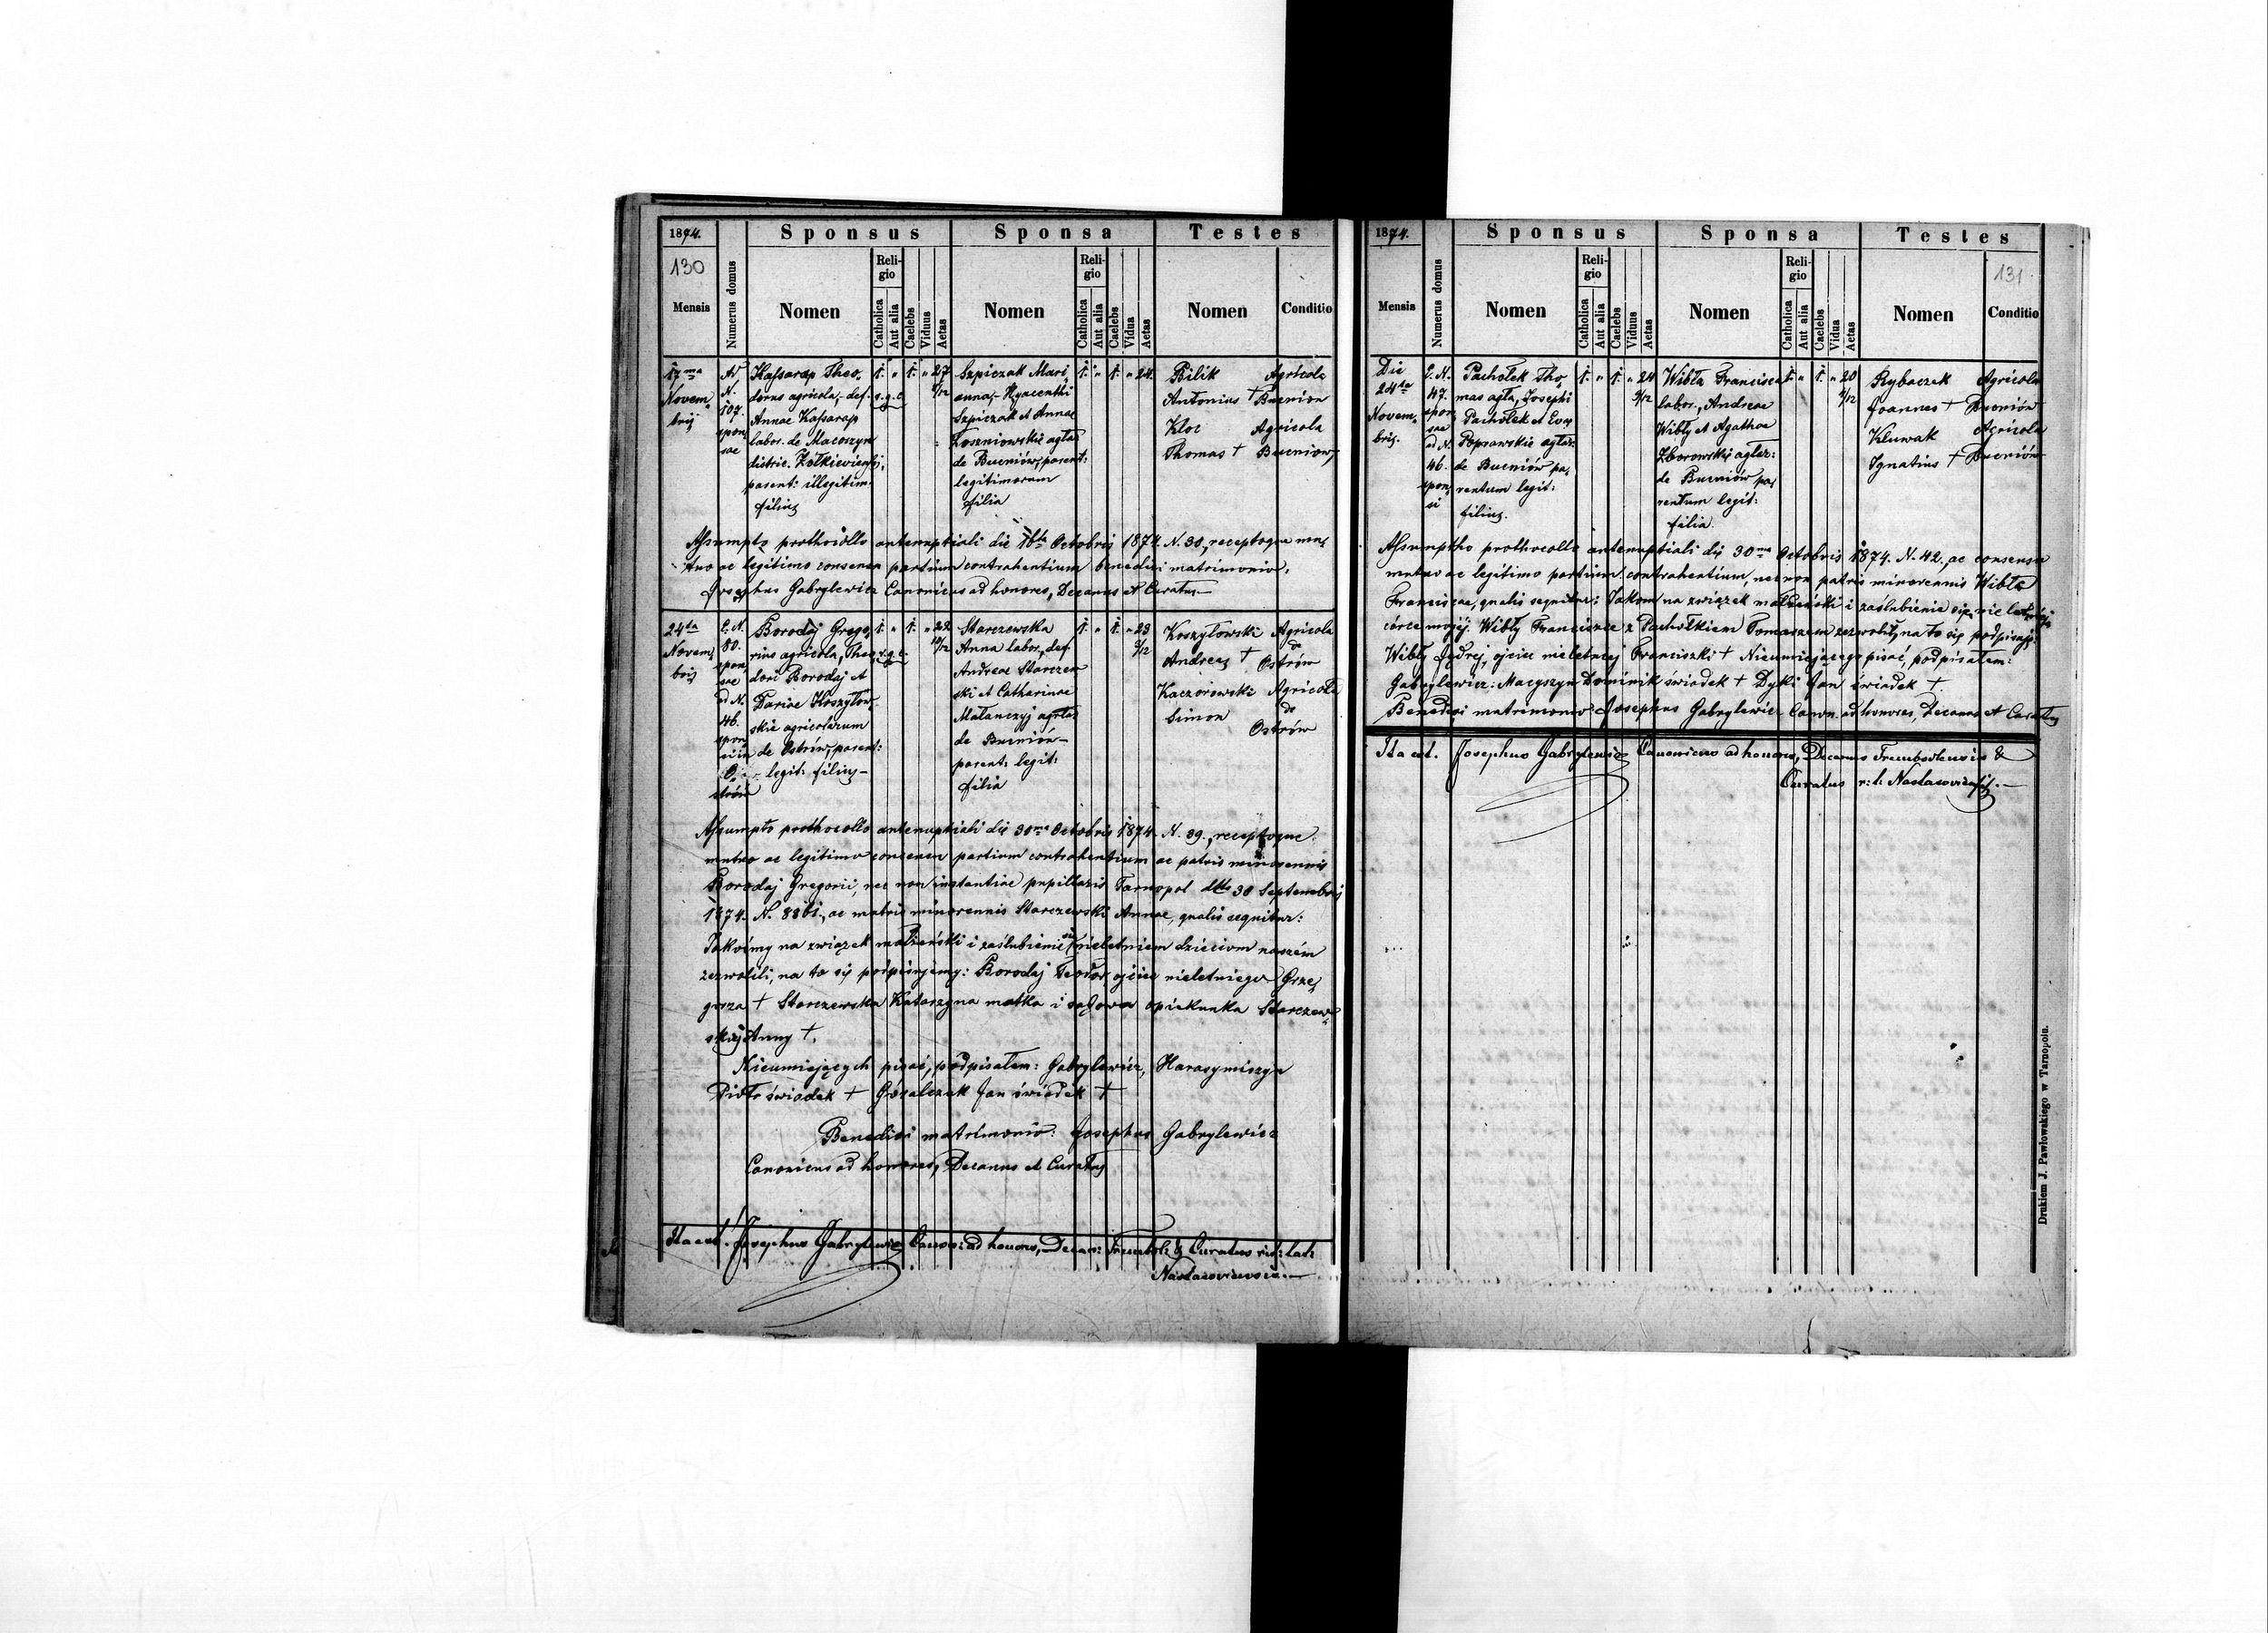 1874. Sponsus Sponsa Testes
130
Mensis Numerus domus Nomen Religio Catholica Aut alia Caelebs Viduus Aetas Nomen Religio Catholica Aut alia Caelebs Vidua Aetas Nomen Conditio
17ma Novembrij
N. 107. sponsae
Kassarap Theo„
dorus agricola, def.
Annae Kassarap
labor. de Macoszyn
distric. Żołkieviensij,
parent: illegitim.
filius
1. „ 1. „ 27 r.g.c.
Szpiczak Mari„
anna, Hyacenthi
Szpiczak et Annae
Łoszniowskie agła:
de Bucniów, parent:
legitimorum
filia
1. „ 1. „ 24.
Bilik Agricola
Antonius † Bucniow
Kloc Agricola
Thomas † Bucniow
Assumpto prothocollo antenuptiali die 16ta Octobris 1874. N. 30, receptoque mu„
tuo ac legitimo consensu partium contrahentium benedixi matrimonio,
Josephus Gabrylewicz Canonicus ad honores, Decanus et Curatus
24ta Novembris
C. N. 80. sponsae ad N. 46. sponsi in Ostrów
Borodaj Grego„
rius agricola, Theo„
dori Borodaj et
Dariae Koszyłow„
skie agricolarum
de Ostrów, parent:
legit: filius
1. „ 1. „ 22 r.g.c.
Starczewska
Anna labor, def.
Andreae Starczew
ski et Catharinae
Małanczyj agrła:
de Bucniów
parent: legit:
filia
1. „ 1. „ 23
Koszyłowski Agricola
Andreas † de Ostrów
Kaczorowski Agricola
Simon de
Ostrów
Assumpto prothocollo antenuptiali die 30ma Octobris 1874. N. 39. receptoque
mutuo ac legitimo consensu partium contrahentium ac patris minorennis
Borodaj Gregorii, nec non instantiae pupillaris Tarnopol dtto 30 Septembris
1874. N. 8861, ac matris minorennis Starczewski Annae, qualis sequitur:
Jakośmy na związek małżeński i zaślubienie się nieletniem dzieciom naszém
zezwolili, na to się podpisujemy: Borodaj Teodor, ojciec nieletniego Grze„
gorza † Starczewska Katarzyna matka i sądowa opiekunka Starczew„
skiej Anny †.
Nieumiejących pisać, podpisałem: Gabrylewicz, Harasymiszyn
Piotr świadek † Góralczuk Jan świadek †
Benedixi matrimonio: Josephus Gabrylewicz
Canonicus ad honores, Decanus et Curatus
Ita est. Josephus Gabrylewicz Canon: ad honores, Decan: Trembol: & Curatus rit: lat:
Nastasoviensis.
1874. Sponsus Sponsa Testes
131.
Mensis Numerus domus Nomen Religio Catholica Aut alia Caelebs Viduus Aetas Nomen Religio Catholica Aut alia Caelebs Vidua Aetas Nomen Conditio
Die 24ta Novembris.
C. N. 47. sponsae ad N. 46. sponsi
Pachołek Tho„
mas agła, Josephi
Pachołek et Evae
Poprawskie agłar:
de Bucniów pa„
rentum legit:
filius.
1. „ 1. „ 24
Wibła Francisca
labor., Andreae
Wibły et Agathae
Zborowskie agłar:
de Bucniów pa„
rentum legit:
filia.
1. „ 1. „ 20
Rybaczek Agricola
Joannes † Bucniów
Kluwak Agricola
Ignatius † Bucniów
Assumptho prothocollo antenuptiali die 30ma Octobris 1874. N. 42, ac consensu
mutuo ac legitimo partium contrahentium, nec non patris minorennis Wibła
Franciscae, qualis sequitur: Jakom na związek małżeński i zaślubienie się nieletniej
córce mojéj Wibły Franciszce z Pachołkiem Tomaszem zezwolił, na to się podpisuję:
Wibły Jędrej, ojciec nieletniej Franciszki † Nieumiejącego pisać, podpisałem:
Gabrylewicz: Macyszyn Dominik świadek † Dyki Jan świadek †.
Benedixi matrimonio Josephus Gabrylewicz Canon. ad honores, Decanus et Curatus
Ita est. Josephus Gabrylewicz Canonicus ad honores, Decanus Trembowlensis &
Curatus r: l: Nastasoviensis.
Drukiem J. Pawłowskiego w Tarnopolu.